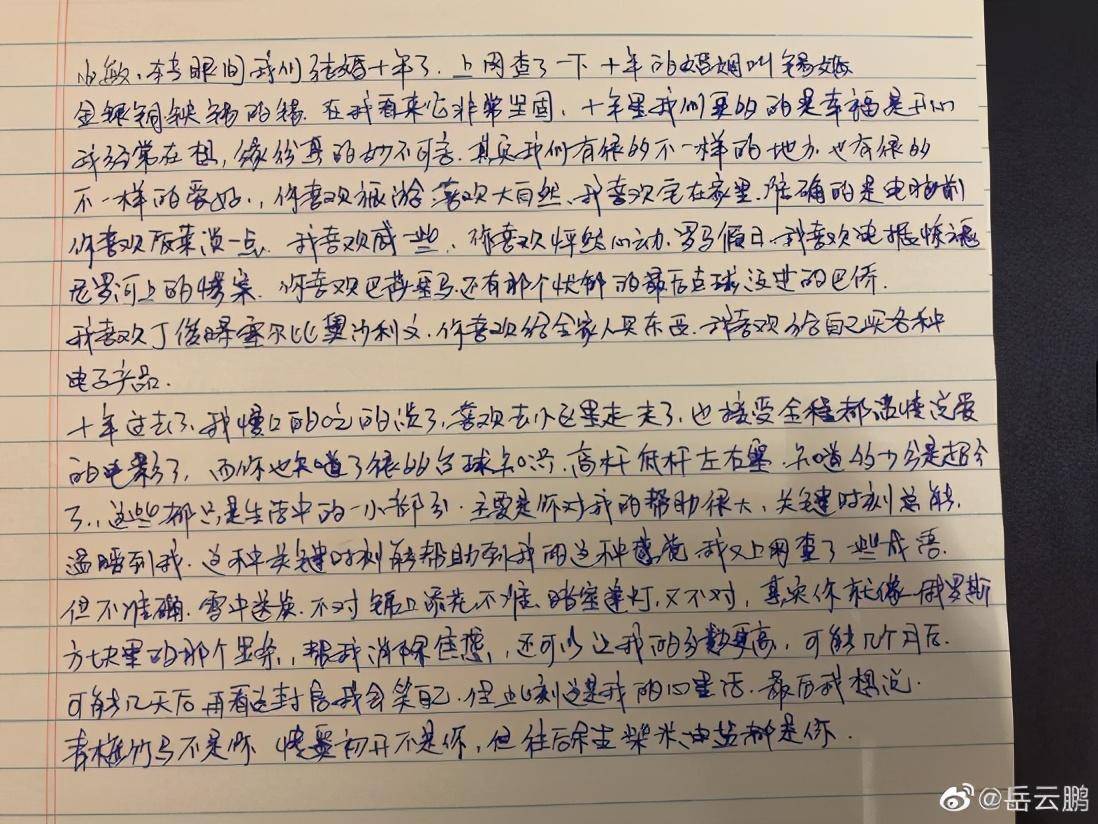 小敏、转眼间我们结婚十年了、上网查了一下十年的婚姻叫锡婚
金银铜铁锡的锡、在我看来它非常坚固、十年里我们更多的是幸福是开心
我经常在想，缘份真的妙不可言、其实我们有很多不一样的地方也有很多
不一样的爱好、你喜欢旅游、喜欢大自然、我喜欢宅在家里、准确的是电脑前
你喜欢饭菜淡一点、我喜欢咸一些、你喜欢怦然心动、罗马假日、我喜欢电锯惊魂
尼罗河上的惨案、你喜欢巴蒂罗马还有那个忧郁的最后点球没进的巴乔
我喜欢丁俊晖塞尔比奥沙利文、你喜欢给全家人买东西、我喜欢给自己买各种
电子产品、
十年过去了、我慢慢的吃的淡了、喜欢去小区里走一走了、也接受全程都谈情说爱
的电影了、而你也知道了很多台球知识、高杆低杆左右塞、知道多少分是超分
了、这些都只是生活中的一小部分、主要是你对我的帮助很大、关键时刻总能
温暖到我、这种关键时刻能帮助到我的这种感觉我又上网查了一些成语、
但不准确、雪中送炭、不对锦上添花不准、暗室逢灯、又不对，其实你就像俄罗斯
方块里的那个竖条，帮我消除焦虑，还可以让我的分数更高，可能几个月后、
可能几天后再看这封信我会笑自己、但此刻这是我的心里话、最后我想说、
青梅竹马不是你 情窦初开不是你，但往后余生柴米油盐都是你、
@岳云鹏